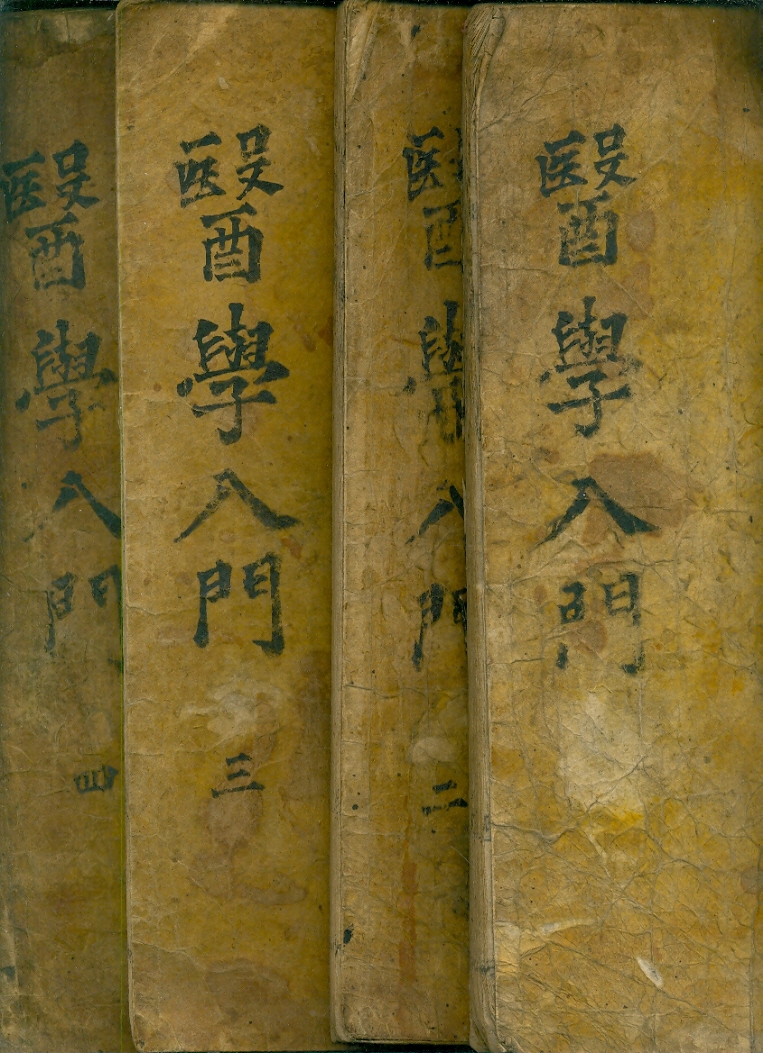 醫學入門
醫學入門 二
醫學入門 三
醫學入門 四